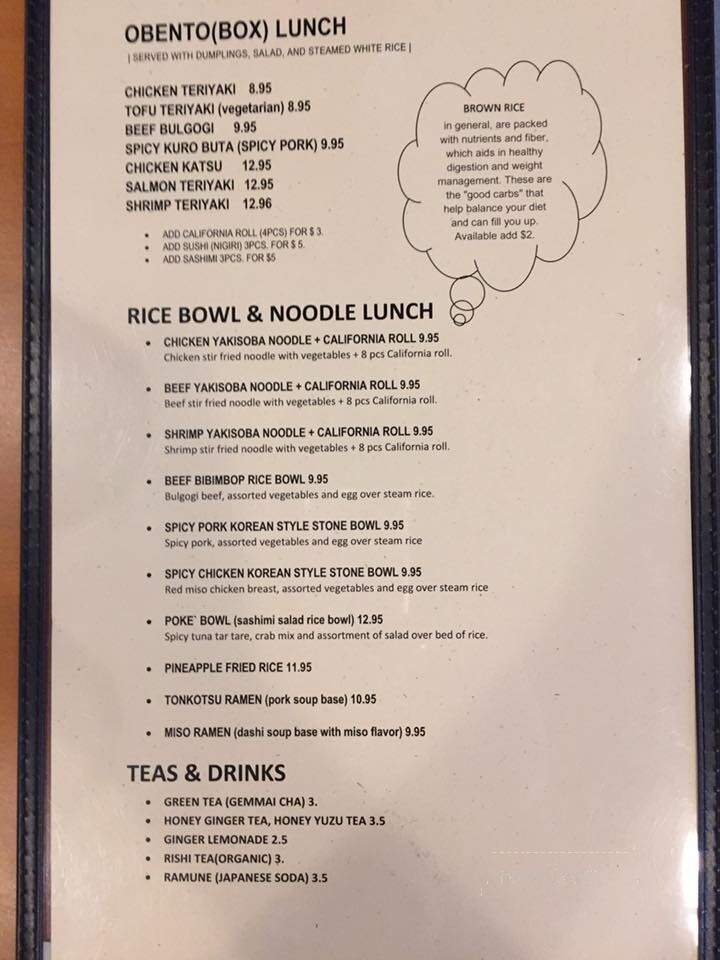 OBENTO(BOX) LUNCH
| SERVED WITH DUMPLINGS, SALAD, AND STEAMED WHITE RICE |
CHICKEN TERIYAKI 8.95
TOFU TERIYAKI (vegetarian) 8.95
BEEF BULGOGI 9.95
SPICY KURO BUTA (SPICY PORK) 9.95
CHICKEN KATSU 12.95
SALMON TERIYAKI 12.95
SHRIMP TERIYAKI 12.96
• ADD CALIFORNIA ROLL (4PCS) FOR $ 3.
• ADD SUSHI (NIGIRI) 3PCS. FOR $ 5.
• ADD SASHIMI 3PCS. FOR $5
BROWN RICE
in general, are packed
with nutrients and fiber,
which aids in healthy
digestion and weight
management. These are
the "good carbs" that
help balance your diet
and can fill you up.
Available add $2.
RICE BOWL & NOODLE LUNCH
• CHICKEN YAKISOBA NOODLE + CALIFORNIA ROLL 9.95
Chicken stir fried noodle with vegetables + 8 pcs California roll.
• BEEF YAKISOBA NOODLE + CALIFORNIA ROLL 9.95
Beef stir fried noodle with vegetables + 8 pcs California roll.
• SHRIMP YAKISOBA NOODLE + CALIFORNIA ROLL 9.95
Shrimp stir fried noodle with vegetables + 8 pcs California roll.
• BEEF BIBIMBOP RICE BOWL 9.95
Bulgogi beef, assorted vegetables and egg over steam rice.
• SPICY PORK KOREAN STYLE STONE BOWL 9.95
Spicy pork, assorted vegetables and egg over steam rice
• SPICY CHICKEN KOREAN STYLE STONE BOWL 9.95
Red miso chicken breast, assorted vegetables and egg over steam rice
• POKE` BOWL (sashimi salad rice bowl) 12.95
Spicy tuna tar tare, crab mix and assortment of salad over bed of rice.
• PINEAPPLE FRIED RICE 11.95
• TONKOTSU RAMEN (pork soup base) 10.95
• MISO RAMEN (dashi soup base with miso flavor) 9.95
TEAS & DRINKS
• GREEN TEA (GEMMAI CHA) 3.
• HONEY GINGER TEA, HONEY YUZU TEA 3.5
• GINGER LEMONADE 2.5
• RISHI TEA(ORGANIC) 3.
• RAMUNE (JAPANESE SODA) 3.5